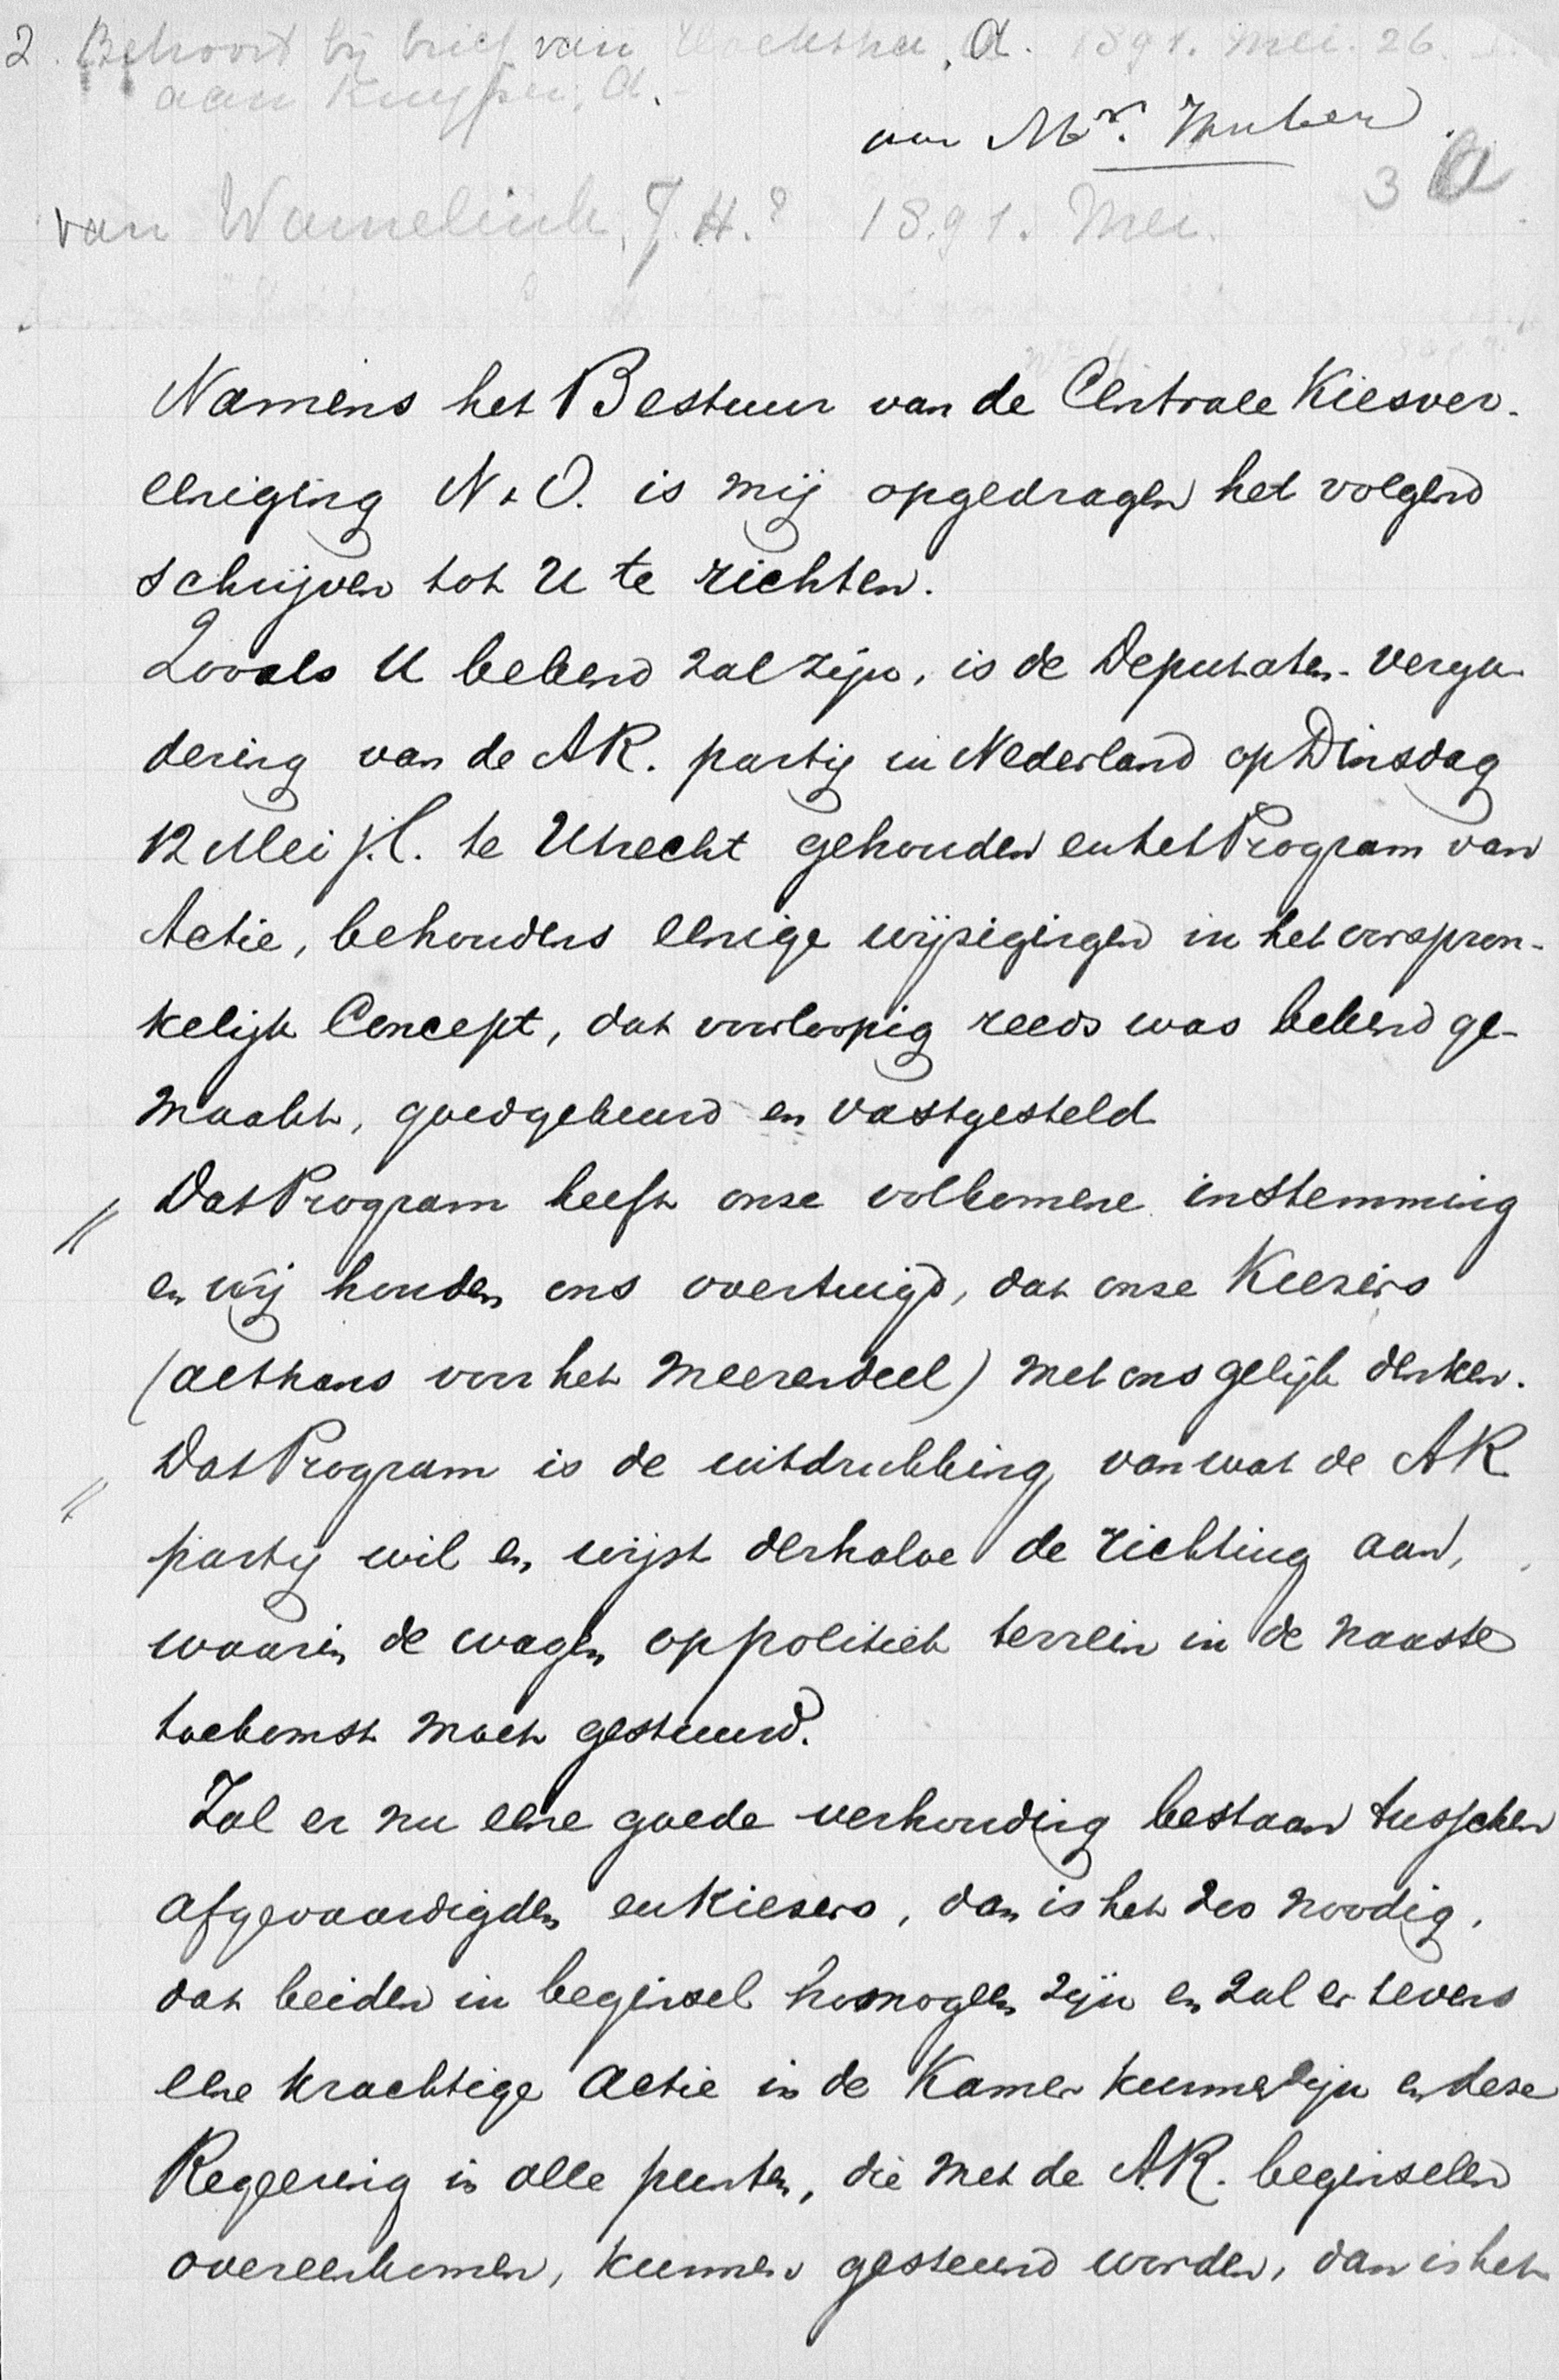 2. Behoort bij brief van A. 1891. Mei. 26.
aan Kuyper, A.
van Mr. Huber.
3 a
van Wamelink, J. H.? 1891. Mei.
Namens het Bestuur van de Centrale Kiesver-
eeniging N. O. is mij opgedragen het volgend
schrijven tot U te richten.
Zooals U bekend zal zijn, is de Deputaten-verga-
dering van de AR. partij in Nederland op Dinsdag
12 Mei j.l. te Utrecht gehouden en het Program van
Actie, behoudens eenige wijzigingen in het oorspron-
kelijk Concept, dat voorloopig reeds was bekend ge-
maakt, goedgekeurd en vastgesteld
Dat Program heeft onze volkomene instemming
en wij houden ons overtuigd, dat onze Kiezers
(althans voor het meerendeel) met ons gelijk denken.
Dat Program is de uitdrukking van wat de AR
partij wil en wijst derhalve de richting aan,
waarin de wagen op politiek terrein in de naaste
toekomst moet gestuurd.
Zal er nu eene goede verhouding bestaan tusschen
afgevaardigden en Kiezers, dan is het dus noodig,
dat beiden in beginsel homogeen zijn en zal er tevens
eene krachtige actie in de Kamer kunnen zijn en deze
Regeering in alle punten, die met de A.R. beginselen
overeenkomen, kunnen gesteund worden, dan is het